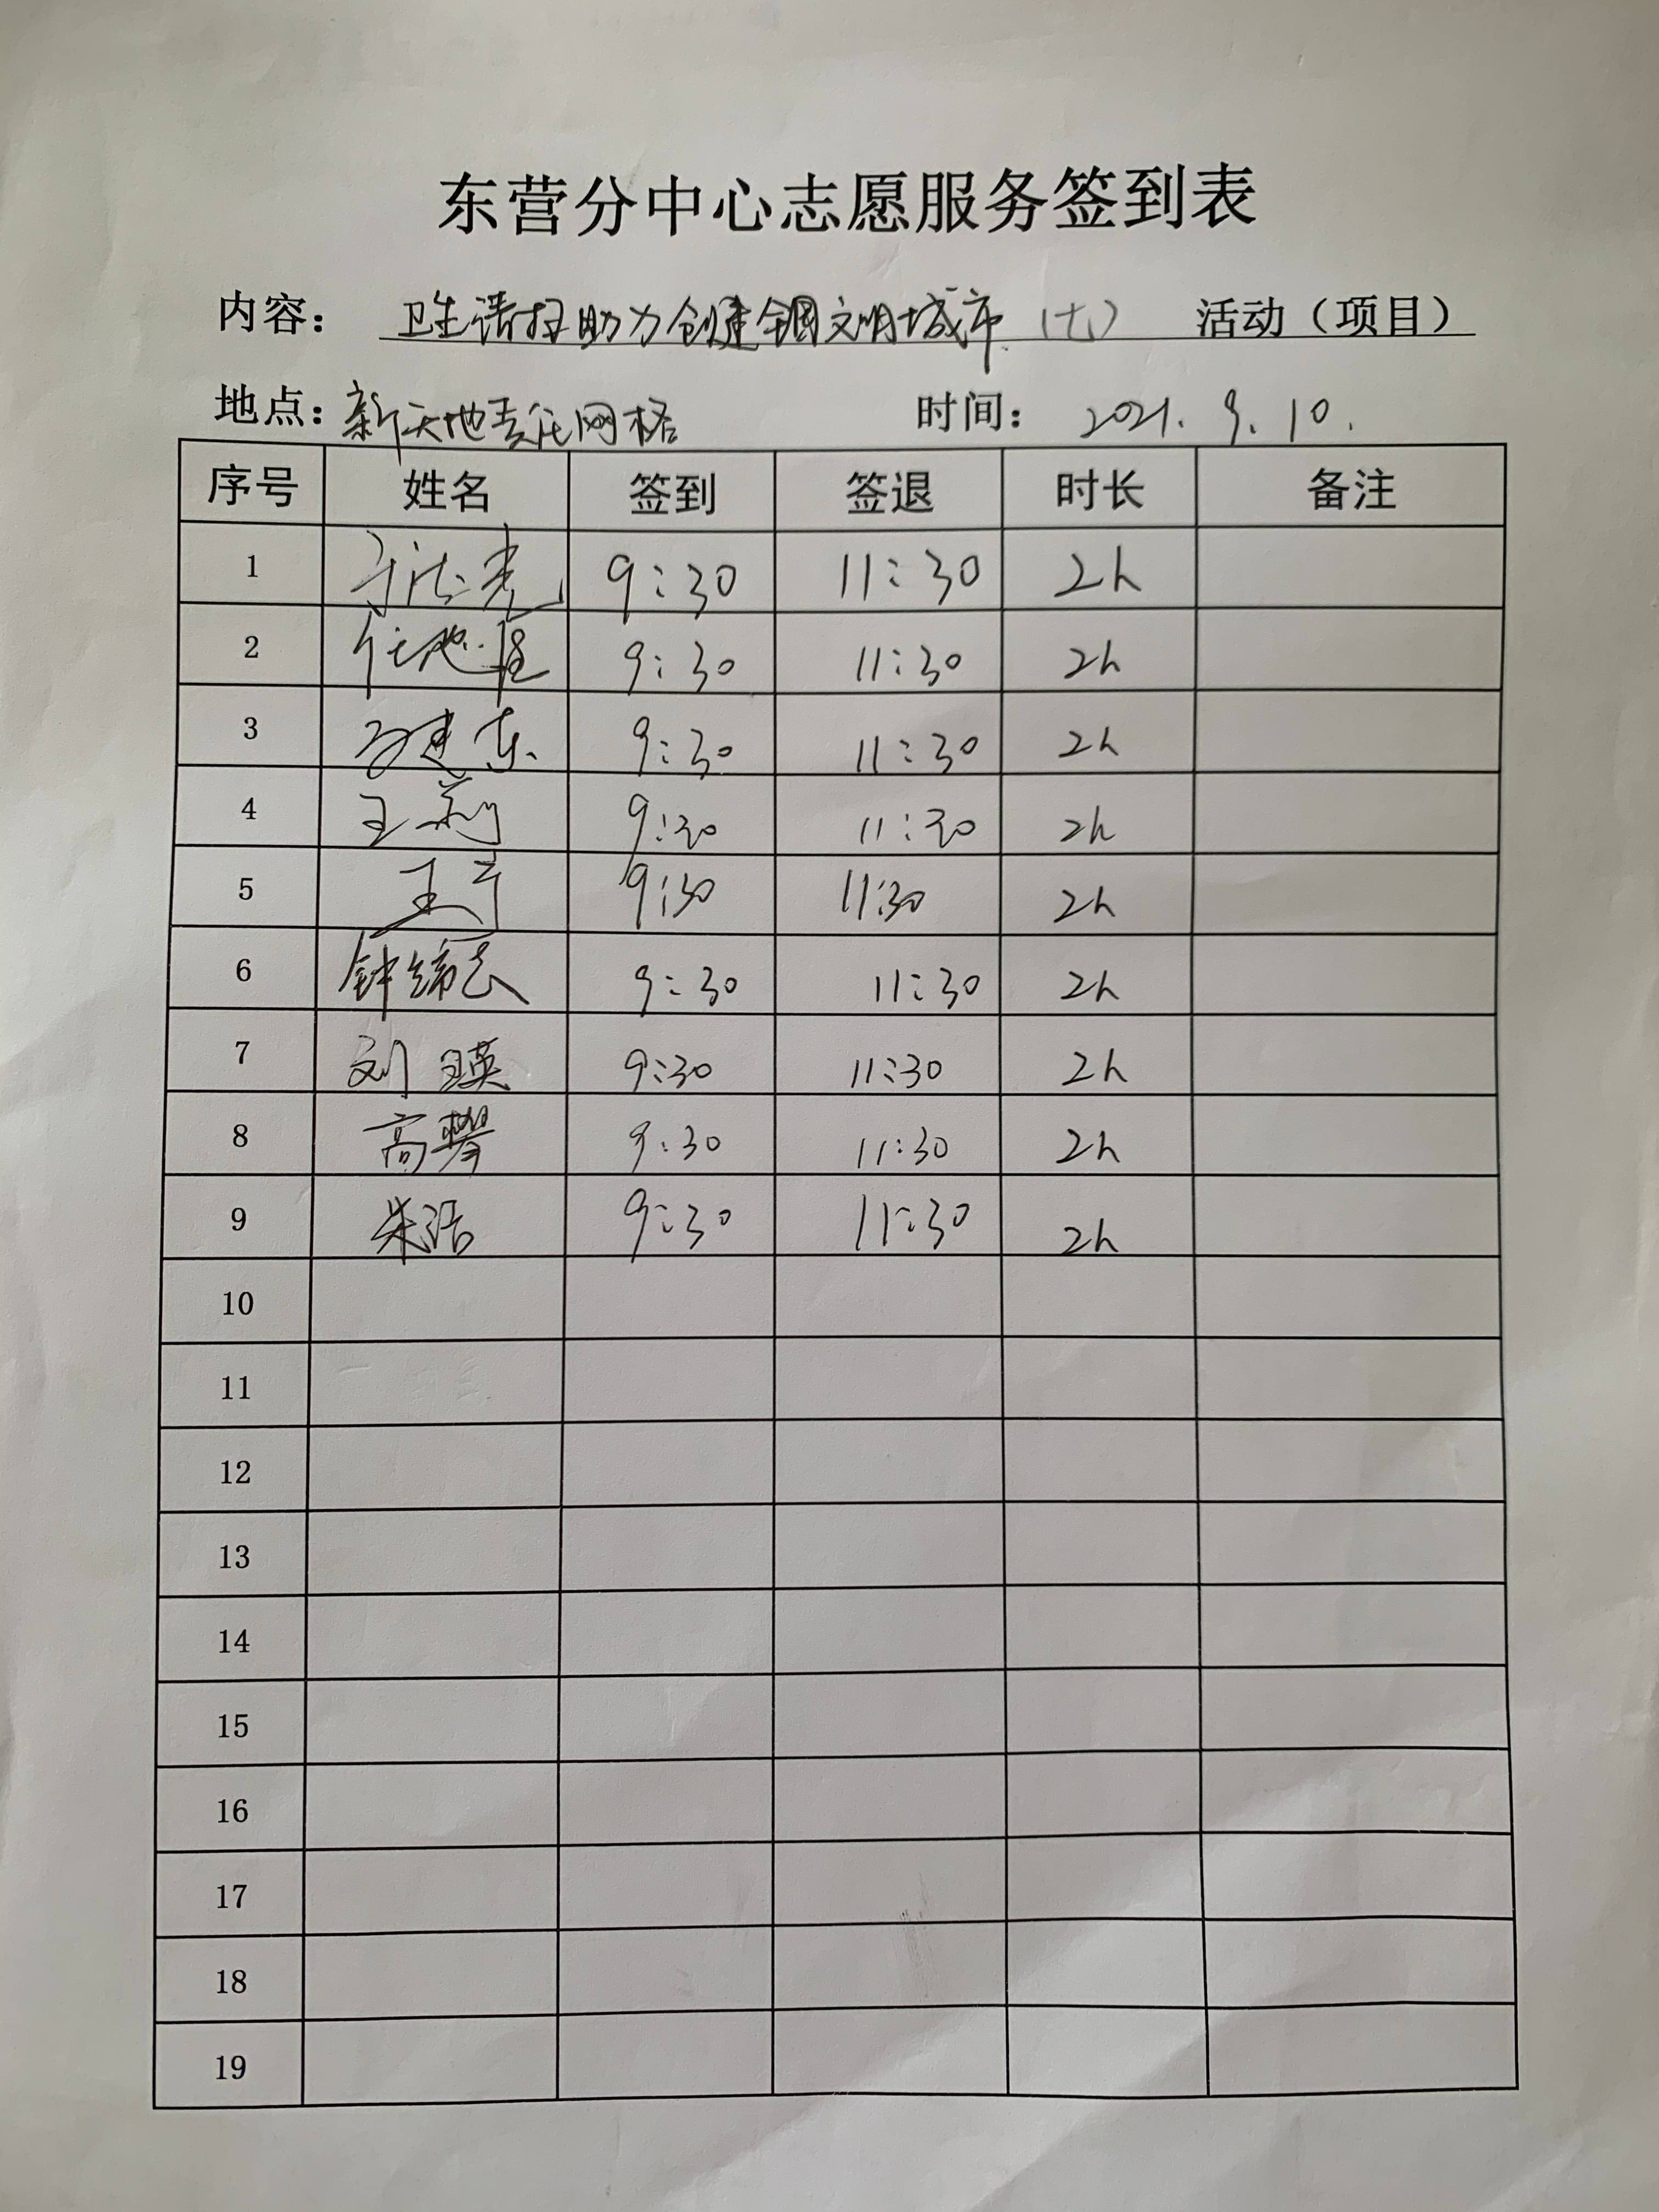 东营分中心志愿服务签到表
内容: 卫生清扫助力创建全国文明城市(七) 活动(项目)
地点: 新天地责任网格 时间: 2021.9.10.
序号 姓名 签到 签退 时长 备注
1 9:30 11:30 2h
2 9:30 11:30 2h
3 9:30 11:30 2h
4 王莉 9:30 11:30 2h
5 9:30 11:30 2h
6 9:30 11:30 2h
7 刘瑛 9:30 11:30 2h
8 高攀 9:30 11:30 2h
9 朱浩 9:30 11:30 2h
10
11
12
13
14
15
16
17
18
19